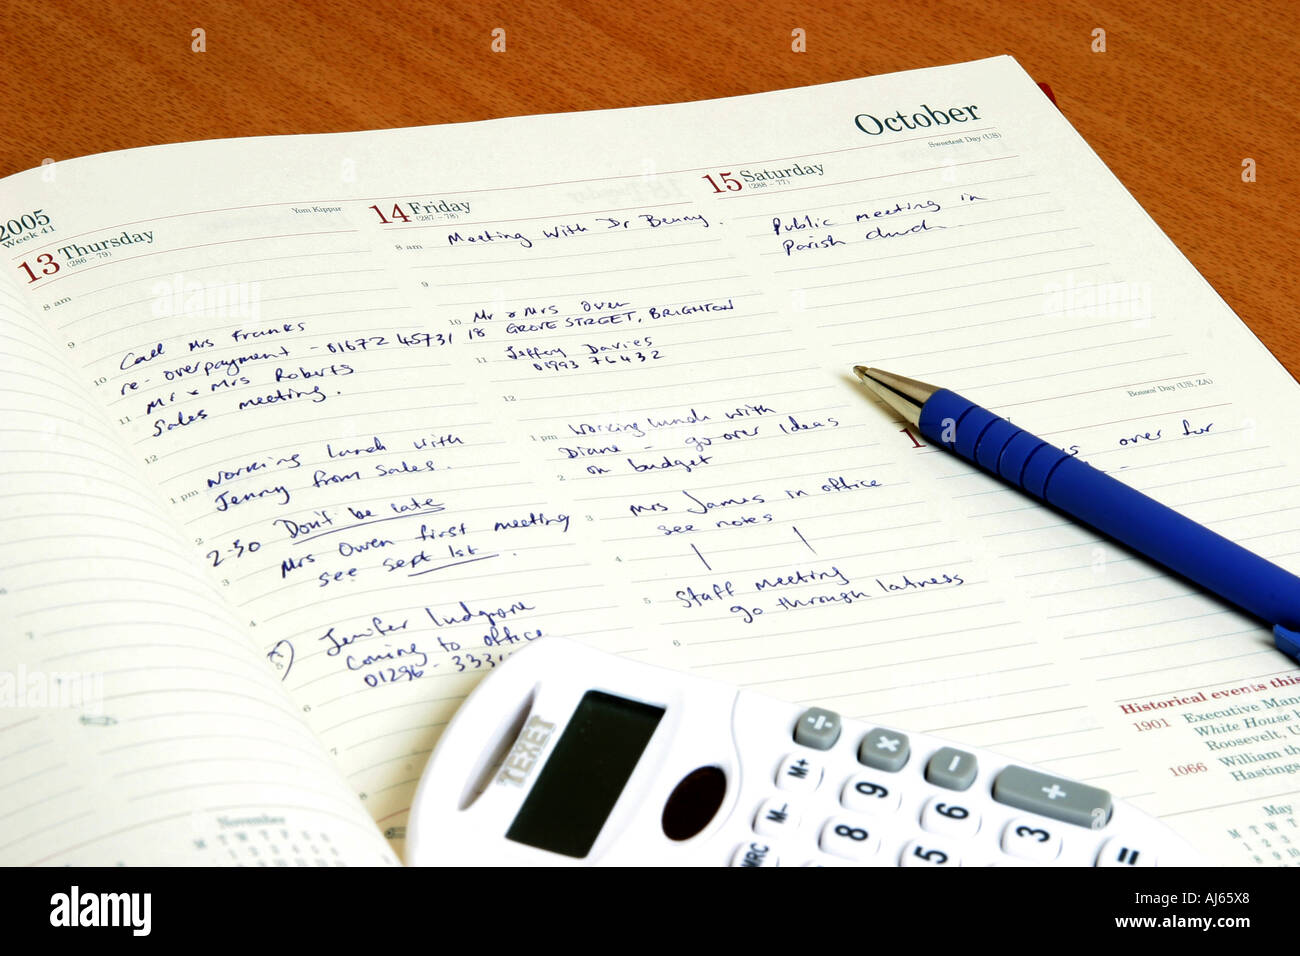 October
Sweetest Day (US)
2005
Week 41
Yom Kippur
13 Thursday
(286 – 79)
8 am
9
Call Mrs Franks
10
re-overpayment - 01672 45731
Mr & Mrs Roberts
11
Sales meeting.
12
Working lunch with
1 pm
Jenny from sales.
2
2-30 Don't be late
Mrs Owen first meeting
3
see sept 1st.
4
Jenifer Ludgrove
5
Coming to office
01296-3331
6
7
14 Friday
(287 – 78)
8 am
Meeting with Dr Benny.
9
10
Mr & Mrs Over
18 GROVE STREET, BRIGHTON
11
Jeffery Davies
01993 76432
12
1 pm
Working lunch with
Diane - go over ideas
2
on budget
3
Mrs James in office
see notes
4
5
Staff meeting
go through latness
6
15 Saturday
(288 – 77)
Public meeting in
Parish church
Bosses' Day (US, ZA)
over for
Historical events this
1901 Executive Man
White House
Roosevelt, U
1066 William th
Hastings
November
M T W T F S S
May
M T W T
TEXET
÷ × − +
M+ 9 6
M- 8 3
MRC 5 =
alamy
Image ID: AJ65X8
www.alamy.com